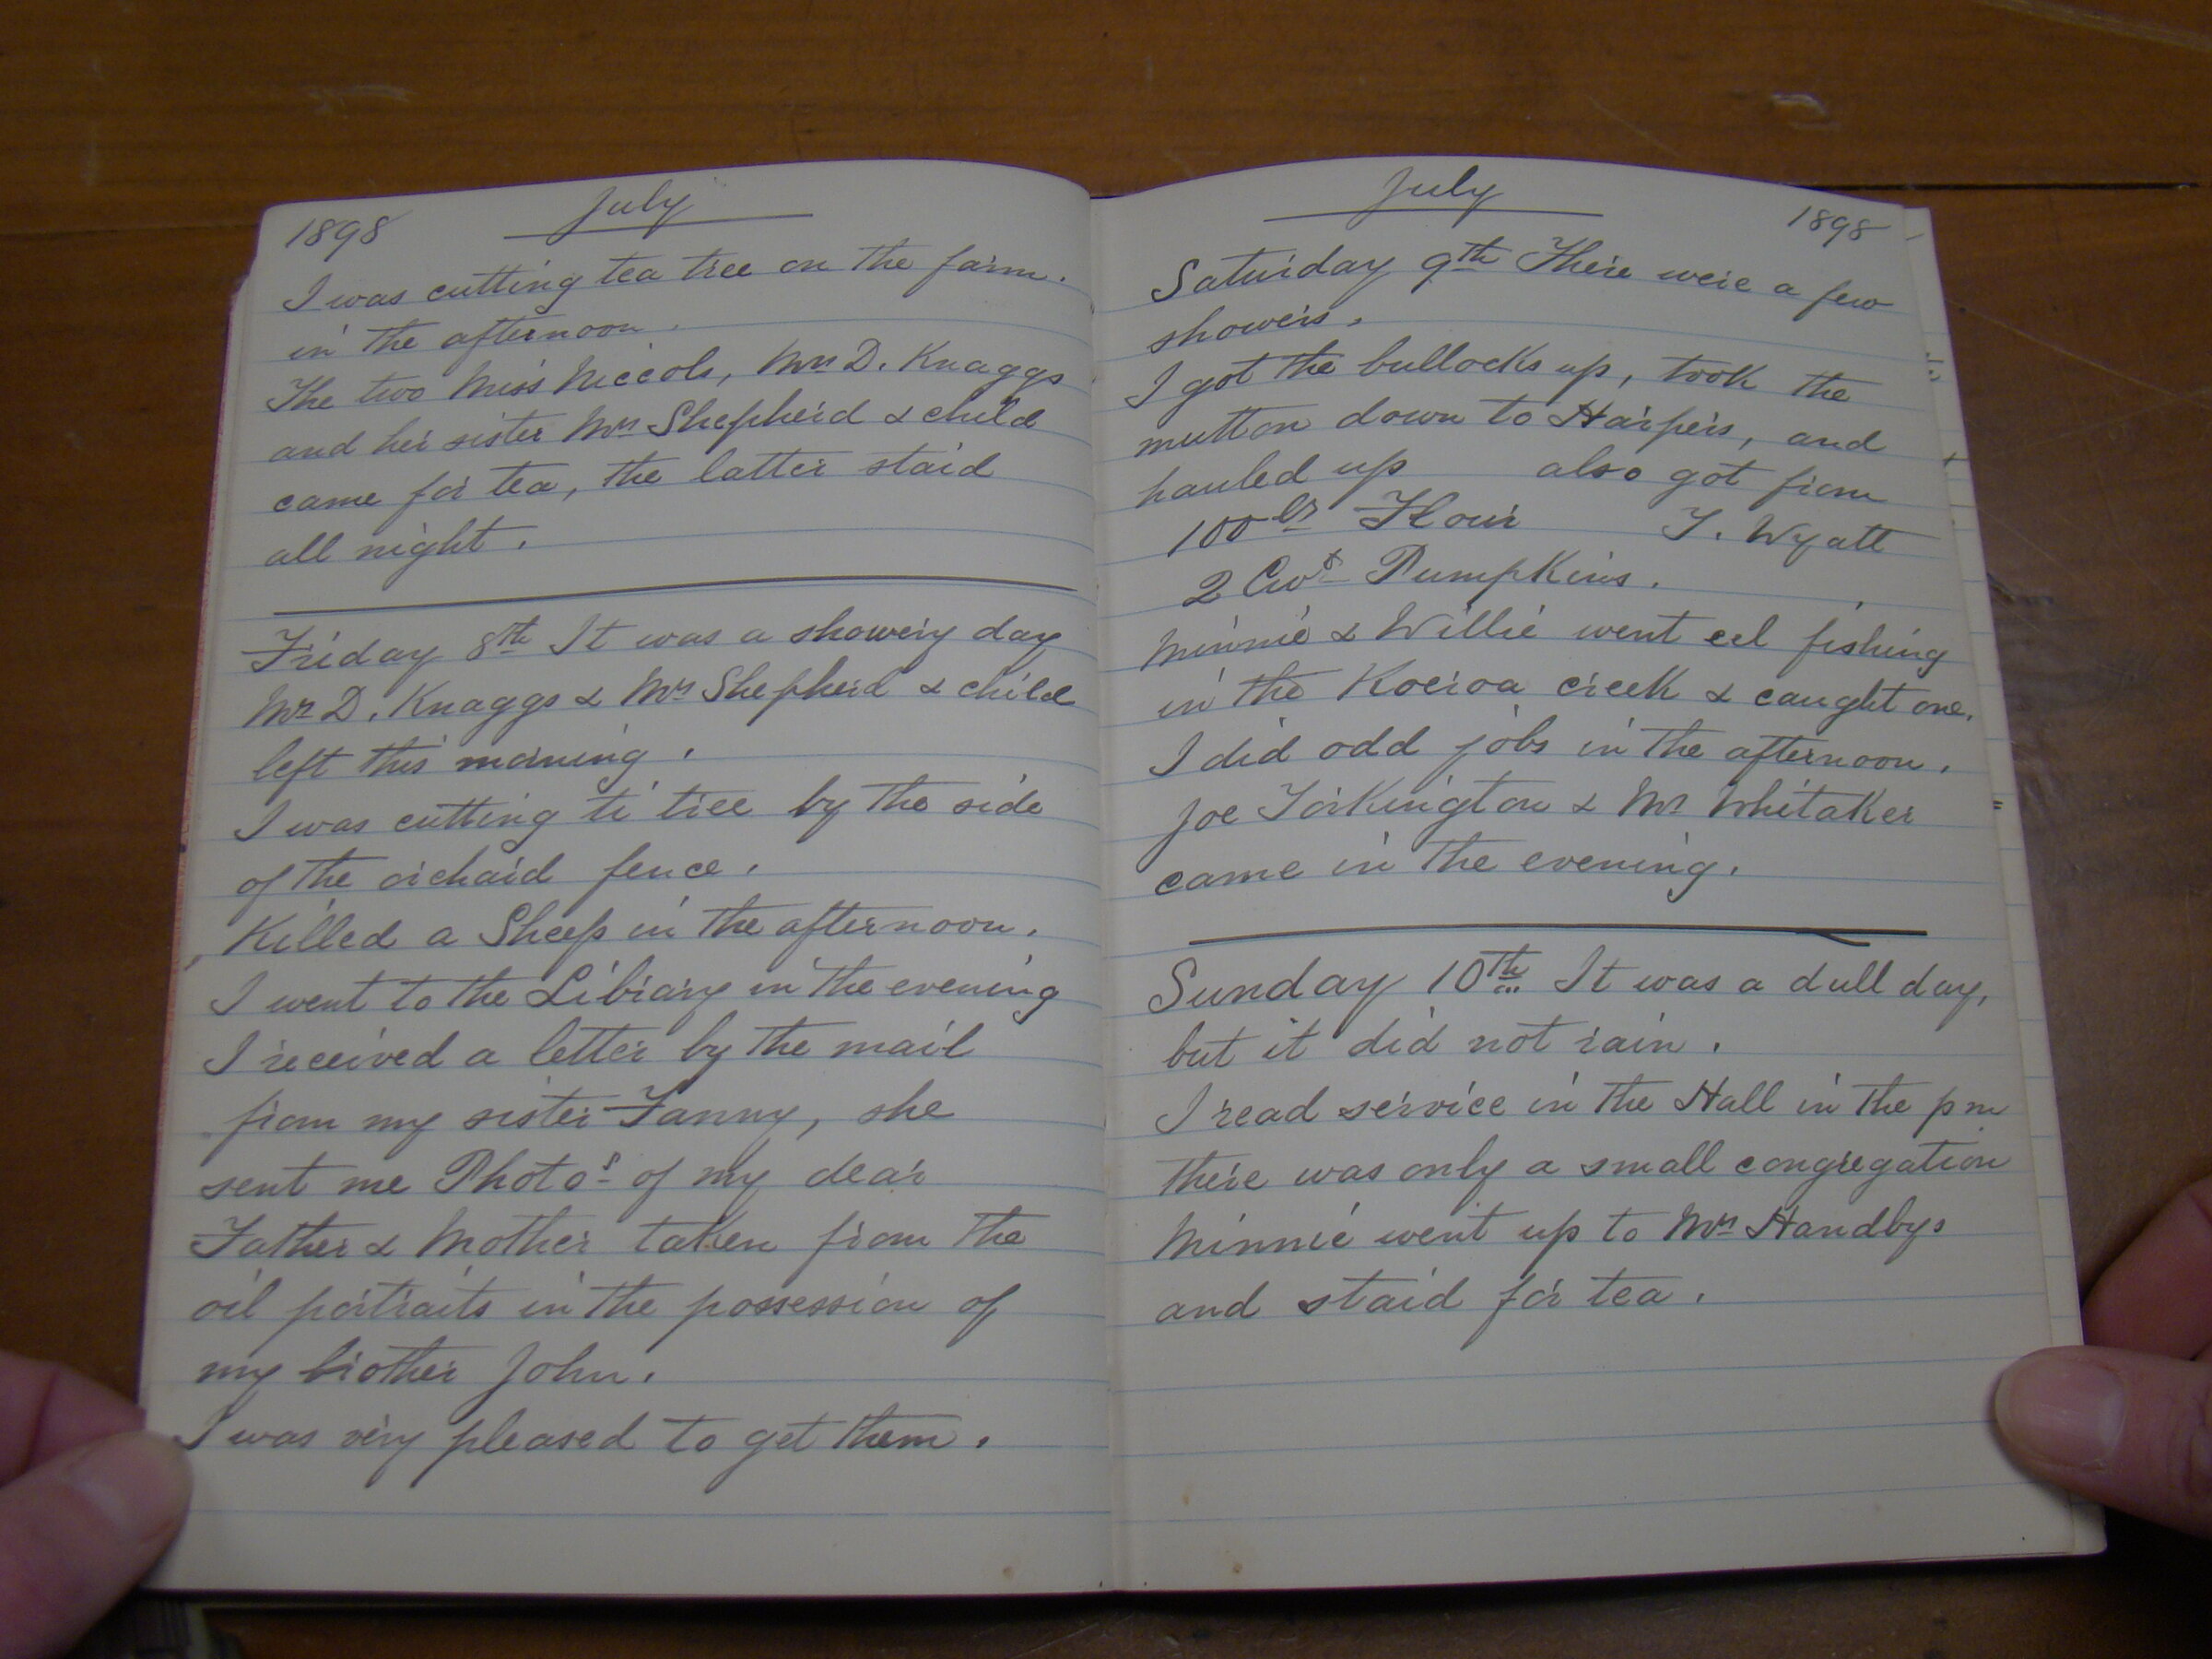 1898 July
I was cutting tea tree on the farm.
in the afternoon.
The two Miss Niccols, Mrs D. Knaggs
and her sister Mrs Shepherd & child
came for tea, the latter staid
all night.
Friday 8th It was a showery day
Mrs D. Knaggs & Mrs Shepherd & child
left this morning.
I was cutting ti tree by the side
of the orchard fence.
Killed a Sheep in the afternoon.
I went to the Library in the evening
I received a letter by the mail
from my sister Fanny, she
sent me Photos of my dear
Father & Mother taken from the
oil portraits in the possession of
my brother John.
I was very pleased to get them.
July 1898
Saturday 9th There were a few
showers.
I got the bullocks up, took the
mutton down to Harpers, and
hauled up also got from
100 lbs Flour T. Wyatt
2 Cwt Pumpkins.
Minnie & Willie went eel fishing
in the Koeroa creek & caught one.
I did odd jobs in the afternoon.
Joe Torkington & Mr Whitaker
came in the evening.
Sunday 10th It was a dull day,
but it did not rain.
I read service in the Hall in the pm
there was only a small congregation
Minnie went up to Mrs Handbys
and staid for tea.